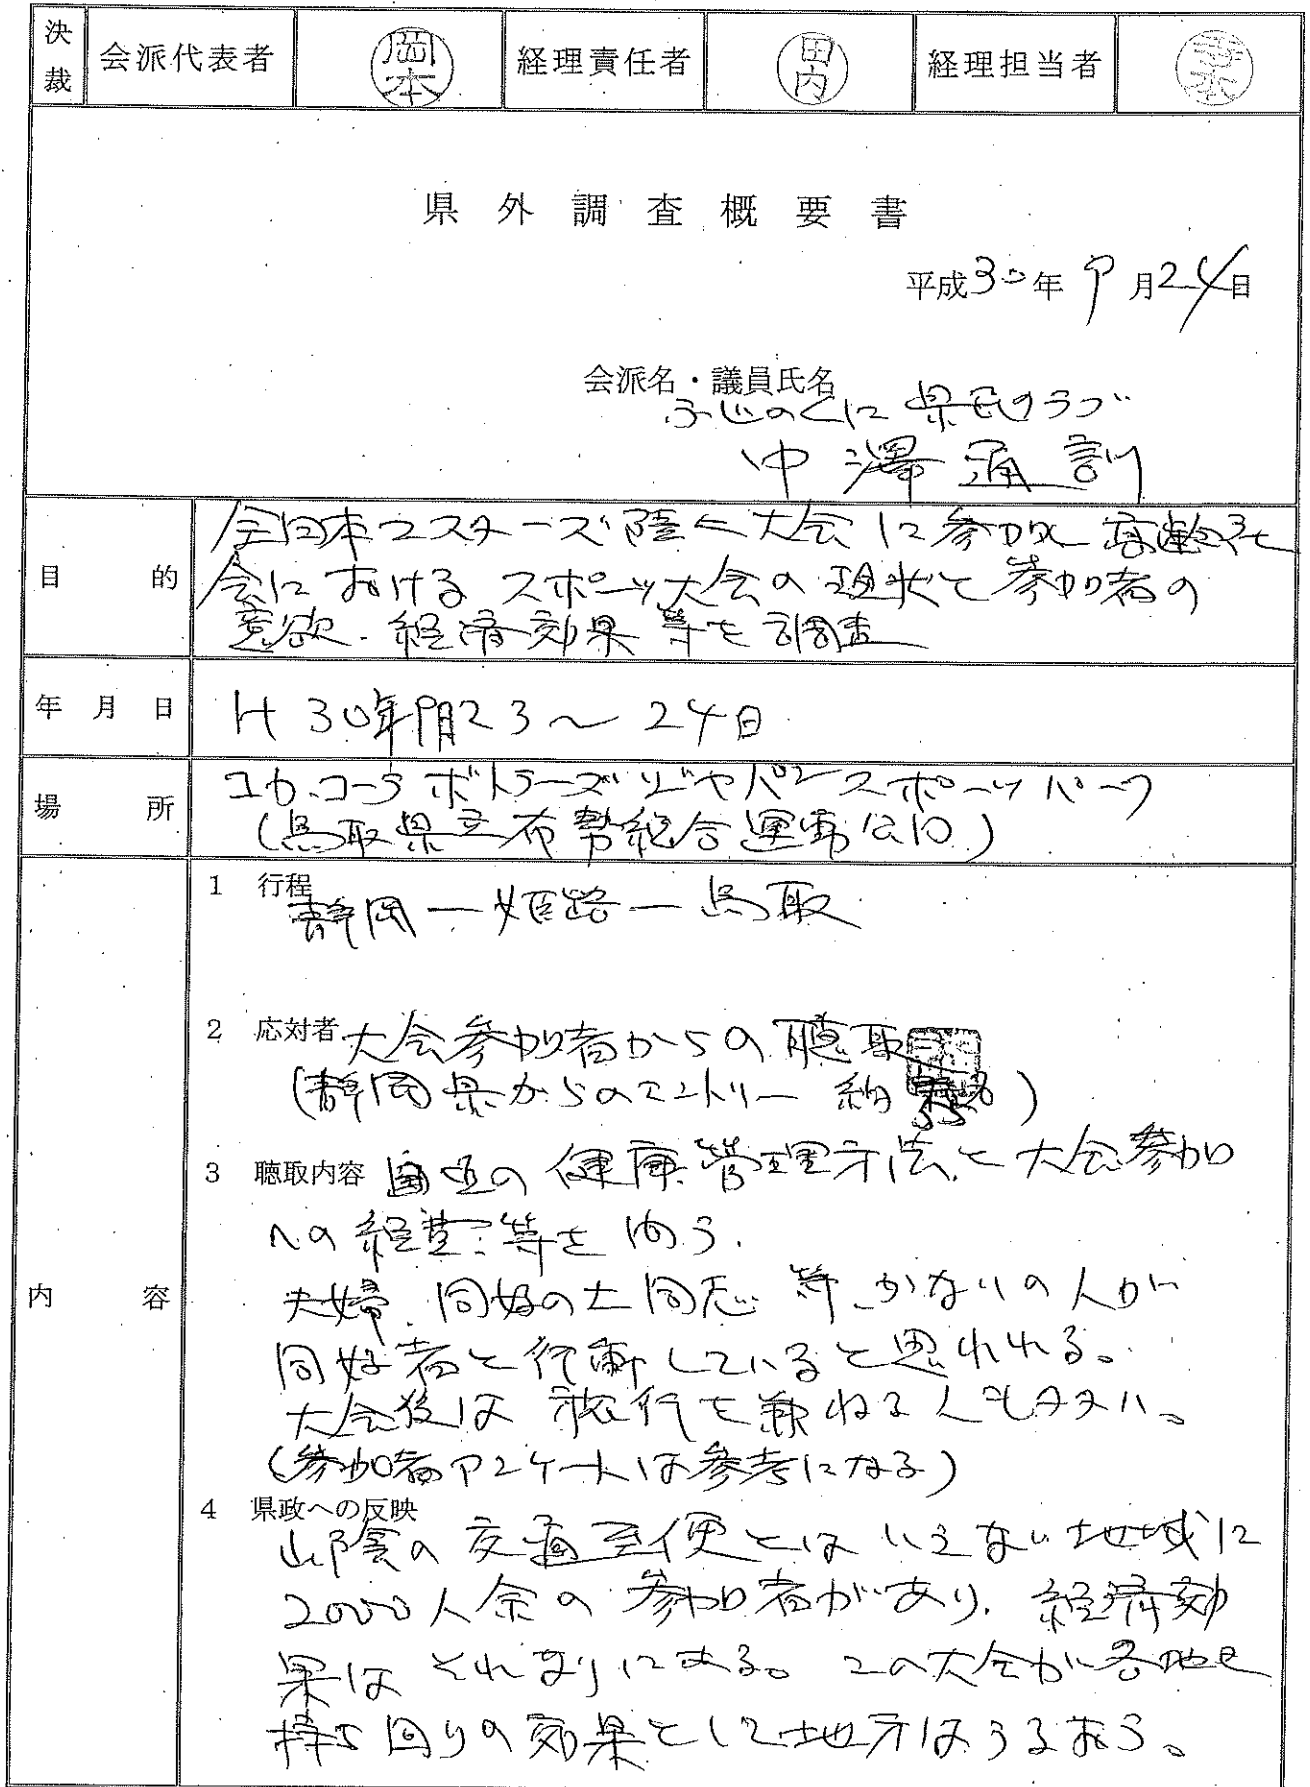 決裁 会派代表者 岡本 経理責任者 田内 経理担当者
県外調査概要書
平成30年9月24日
会派名・議員氏名
ふじのくに県民クラブ
中澤通訓
目的 全日本マスターズ陸上大会に参加し高齢社
会におけるスポーツ大会の現状と参加者の
意欲・経済効果等を調査
年月日 H30年9月23～24日
場所 コカ・コーラボトラーズジャパンスポーツパーク
(鳥取県立布勢総合運動公園)
内容
1 行程
静岡ー姫路ー鳥取
2 応対者 大会参加者からの聴取
(静岡県からのエントリー 約55名)
3 聴取内容 の健康管理方法と大会参加
への経費等を問う.
夫婦.同好の士同志等、かないの人が
同好者と行動していると思われる。
大会後は旅行を兼ねる人も多い。
(参加者アンケートは参考になる)
4 県政への反映
山陰の交通至便とはいえない地域に
2000人余の参加者があり、経済効
果はそれなりにある。この大会が各地を
持ち回りの効果として地方はうるおう。